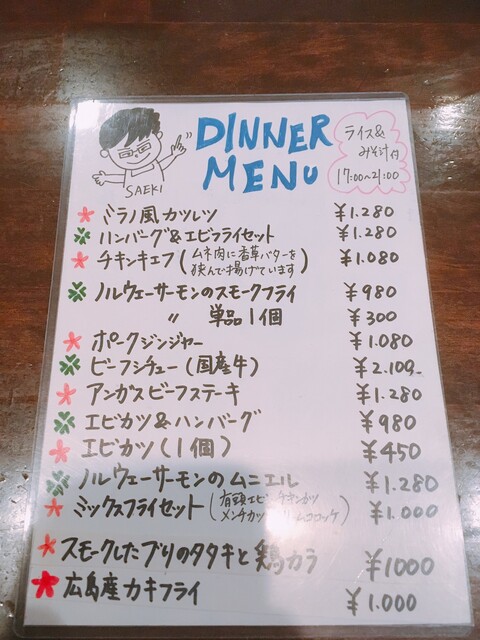 SAEKI
DINNER
MENU
ライス&
みそ汁付
17:00~21:00
ミラノ風カツレツ ¥1.280
ハンバーグ&エビフライセット ¥1.280
チキンキエフ(ムネ肉に香草バターを挟んで揚げています) ¥1.080
ノルウェーサーモンのスモークフライ ¥980
〃 単品1個 ¥300
ポークジンジャー ¥1.080
ビーフシチュー(国産牛) ¥2.100-
アンガスビーフステーキ ¥1.280
エビカツ&ハンバーグ ¥980
エビカツ(1個) ¥450
ノルウェーサーモンのムニエル ¥1.280
ミックスフライセット(有頭エビ チキンカツ
メンチカツ コロッケ) ¥1.000
スモークしたブリのタタキと鶏カラ ¥1000
広島産カキフライ ¥1.000